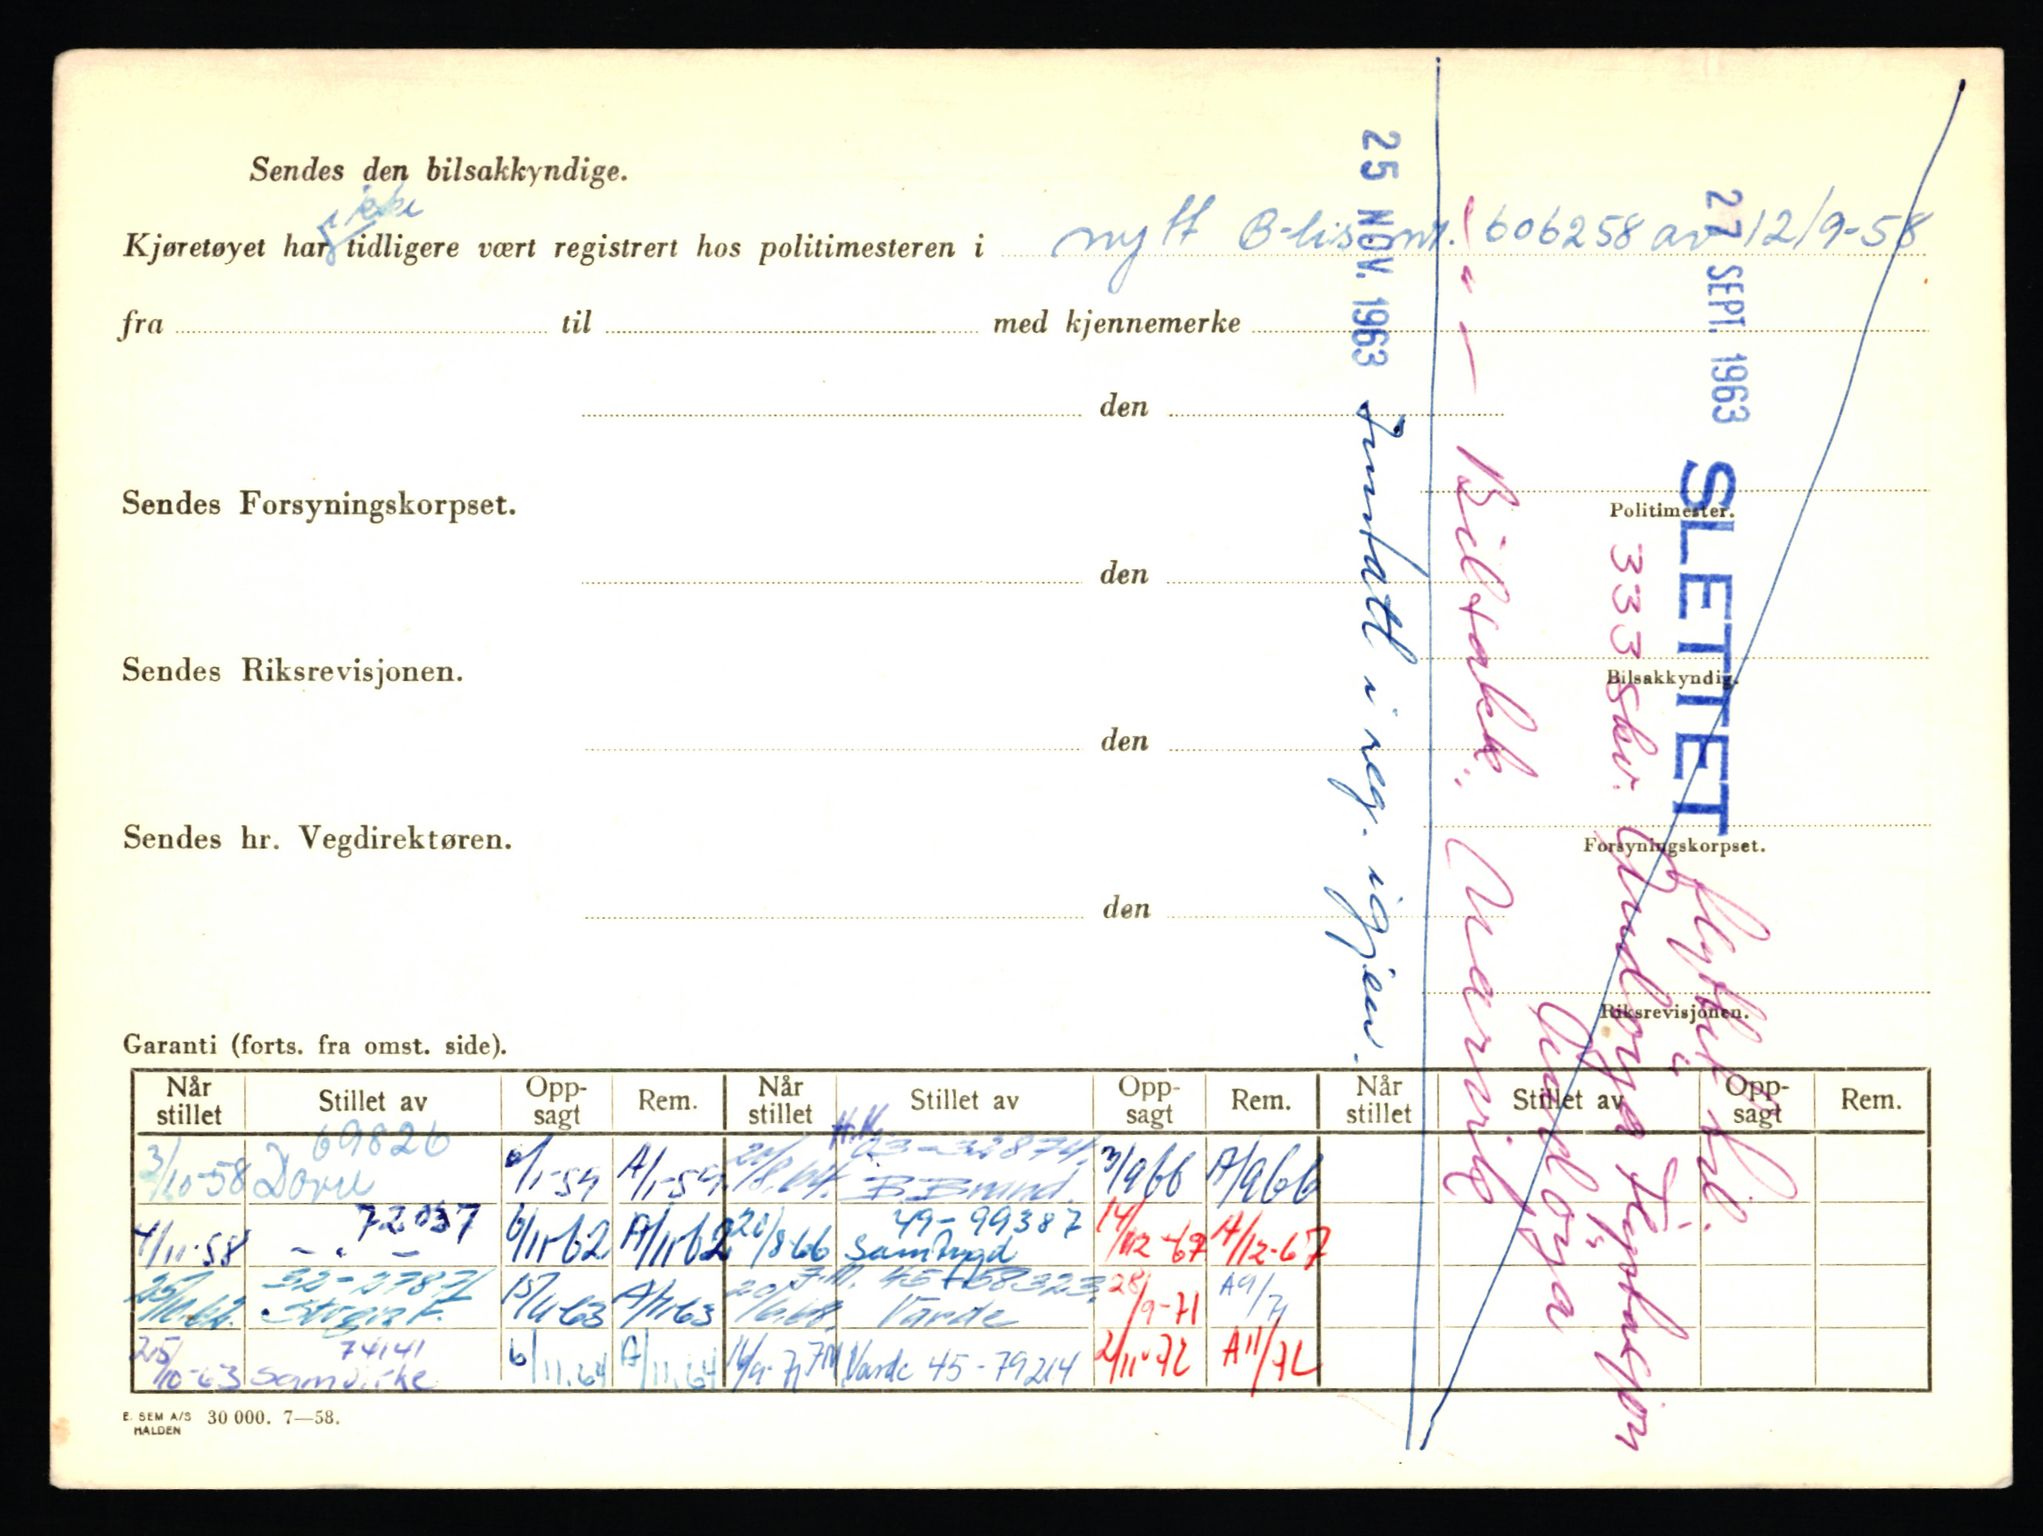 Sendes den bilsakkyndige.
ikke
Kjøretøyet har tidligere vært registrert hos politimesteren i nytt B-lis. nr. 606258 av 12/9-58
fra til med kjennemerke
den
Politimester.
Sendes Forsyningskorpset.
den
Bilsakkyndig.
Sendes Riksrevisjonen.
den
Forsyningskorpset.
Sendes hr. Vegdirektøren.
den
Riksrevisjonen.
25 NOV. 1963 Inntatt i reg. igjen.
27 SEPT. 1963 SLETTET
flyttet til
333 Skv.
Andøya
" — Bilsakk.
Garanti (forts. fra omst. side).
Når stillet Stillet av Opp-sagt Rem. Når stillet Stillet av Opp-sagt Rem. Når stillet Stillet av Opp-sagt Rem.
3/10-58 69826 1-59 A/1-59 H.K. 23-32874 B. Brand. 3/9 66 A/9 66
4/11-58 72037 — " — 6/11-62 A/11-62 20/8-66 49-99387 Samtrygd 14/12-67 A/12-67
32-27871 15/11-63 A/11-63 45-58323 Varde 28/9-71 A9/71
25/10-63 74141 Samvirke 6/11.64 A/11.64 16/9-71 Varde 45-79214 2/11-72 A11/72
E. SEM A/S 30 000. 7—58.
HALDEN